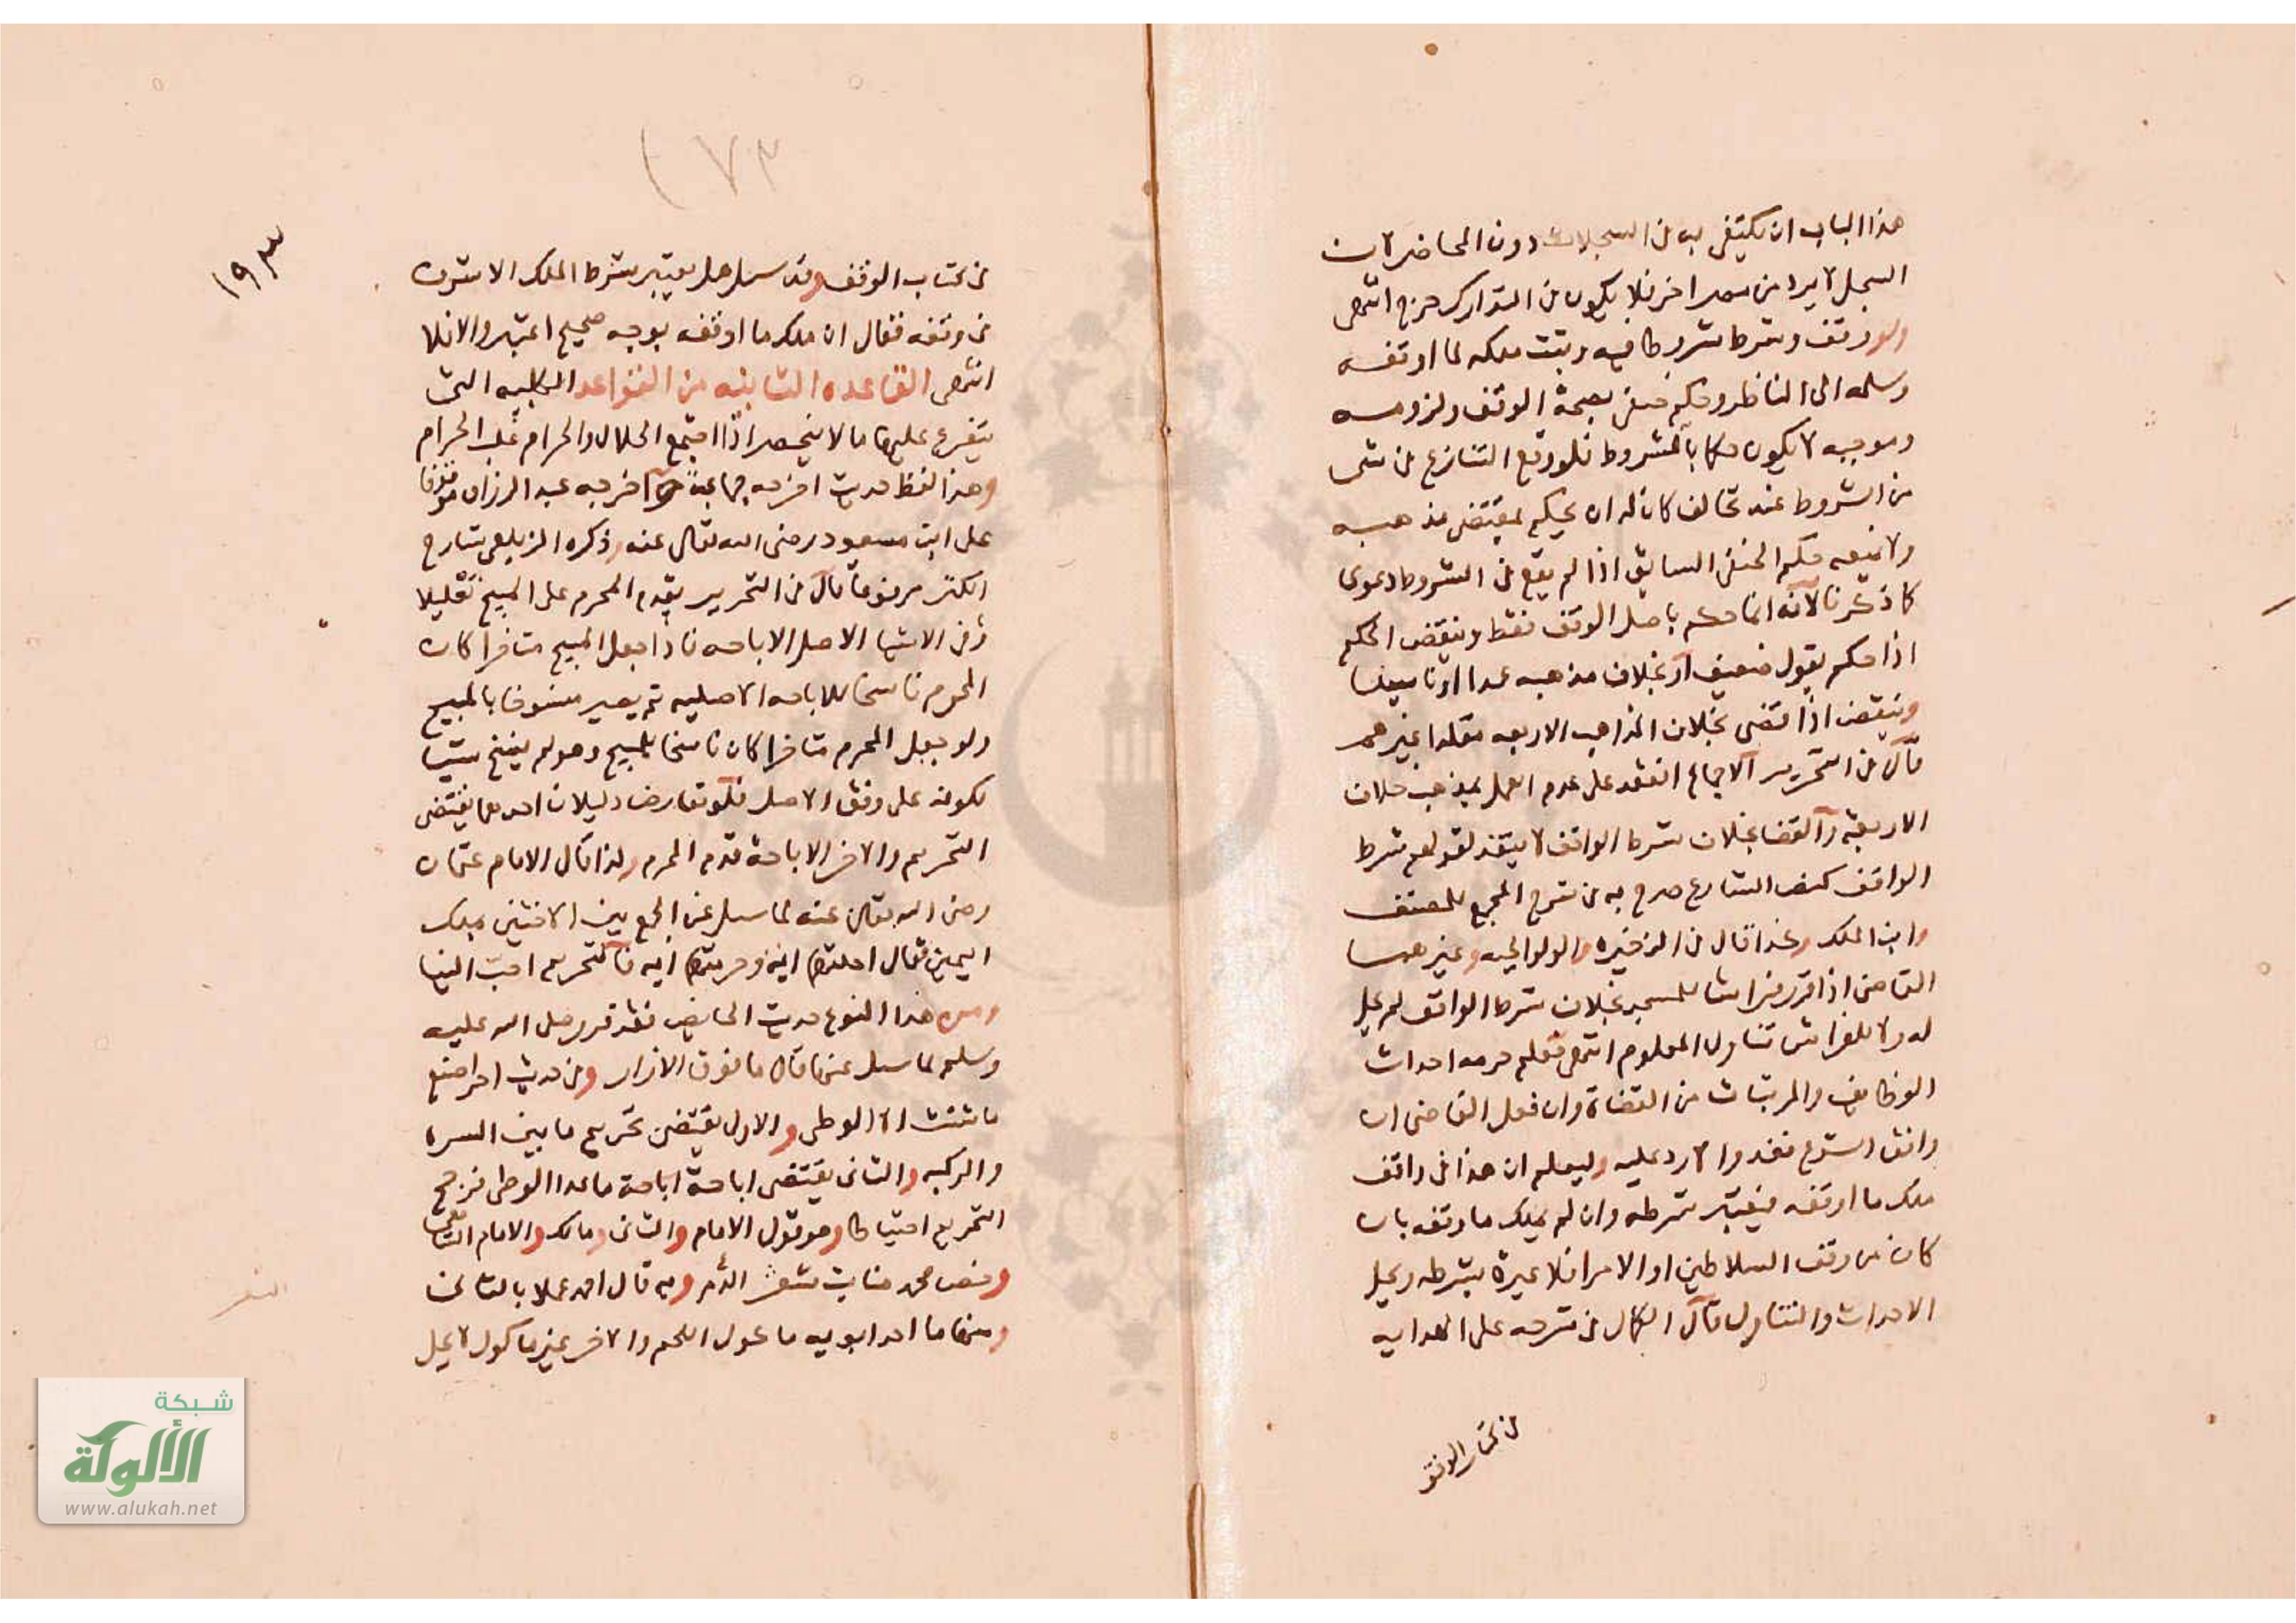 هذا الباب ان يكتفى به في السجلات دون المحاضر لان
السجل لا يرد من مصر اخر فلا يكون في التدارك حرج انتهى
ولو وقف وشرط شروطا فيه وثبت ملكه لما اوقفه
وسلمه الى الناظر وحكم حنفي بصحة الوقف ولزومه
وموجبه لا يكون حكما بالشروط فلو وقع التنازع في شى
من الشروط عند مخالف كان له ان يحكم بمقتضى مذهبه
ولا يمنعه حكم الحنفي السابق اذا لم يقع في الشروط دعوى
كما ذكرنا لانه انما حكم باصل الوقف فقط وينقض الحكم
اذا حكم بقول ضعيف او بخلاف مذهبه عمدا او ناسيا
وينقض اذا قضى بخلاف المذاهب الاربعه مقلدا غيرهم
قال في التحرير الاجماع انعقد على عدم العمل بمذهب خلاف
الاربعة والقضا بخلاف شرط الواقف لا ينفذ لقولهم شرط
الواقف كنص الشارع صرح به في شرح المجمع للمصنف
وابن الملك وكذا قال في الذخيره والولوالجيه وغيرهما
القاضى اذا قرر فراشا للمسجد بخلاف شرط الواقف لم يحل
له ولا للفراش تناول المعلوم انتهى فعلم حرمه احداث
الوظايف والمرتبات من القضاة وان فعل القاضى ان
وافق الشرع نفذ والا رد عليه وليعلم ان هذا في واقف
ملك ما اوقفه فيعتبر شرطه وان لم يملك ما وقفه بان
كان من وقف السلاطين او الامرا فلا عبرة بشرطه ويحل
الاحداث والتناول قال الكمال في شرحه على الهدايه
في كتاب الوقف
١٧٣
١٩٣
في كتاب الوقف وقد سيل هل يعتبر شرط الملك الاشرف
في وقفه فقال ان ملك ما اوقفه بوجه صحيح اعتبر والا فلا
انتهى القاعده الثانيه من القواعد الكليه التى
يتفرع عليها ما لا ينحصر اذا اجتمع الحلال والحرام غلب الحرام
وهذا لفظ حديث اخرجه جماعة اخرجه عبد الرزاق موقوفا
على ابن مسعود رضى الله تعالى عنه وذكره الزيلعى شارح
الكنز مرفوعا قال في التحرير يقدم المحرم على المبيح تقليلا
وفي الاشباه الاصل الاباحه فاذا جعل المبيح متاخرا كان
المحرم ناسخا للاباحه الاصليه ثم يصير منسوخا بالمبيح
ولو جعل المحرم متاخرا كان ناسخا للمبيح وهو لم ينسخ شيا
لكونه على وفق الاصل فلو تعارض دليلان احدهما يقتضى
التحريم والاخر الاباحة قدم المحرم ولذا قال الامام عثمان
رضى الله تعالى عنه لما سيل عن الجمع بين الاختين بملك
اليمين فقال احلتهما ايه وحرمتهما ايه فالتحريم احب الينا
ومن هذا النوع حديث الحايض فقد قرر صلى الله عليه
وسلم لما سيل عنها قال ما فوق الازار وفي حديث اخر اصنع
ما شئت الا الوطى والاول يقتضى تحريم ما بين السره
والركبه والثانى يقتضى اباحة اباحة ماعدا الوطى فرجح
التحريم احتياطا وهو قول الامام والثانى ومالك والامام الشافعى
وخص محمد شعار الدم وبه قال احمد عملا بالثانى
ومنها ما احد ابويه ماكول اللحم والاخر غير ماكول لا يحل
شبكة
الألوكة
www.alukah.net